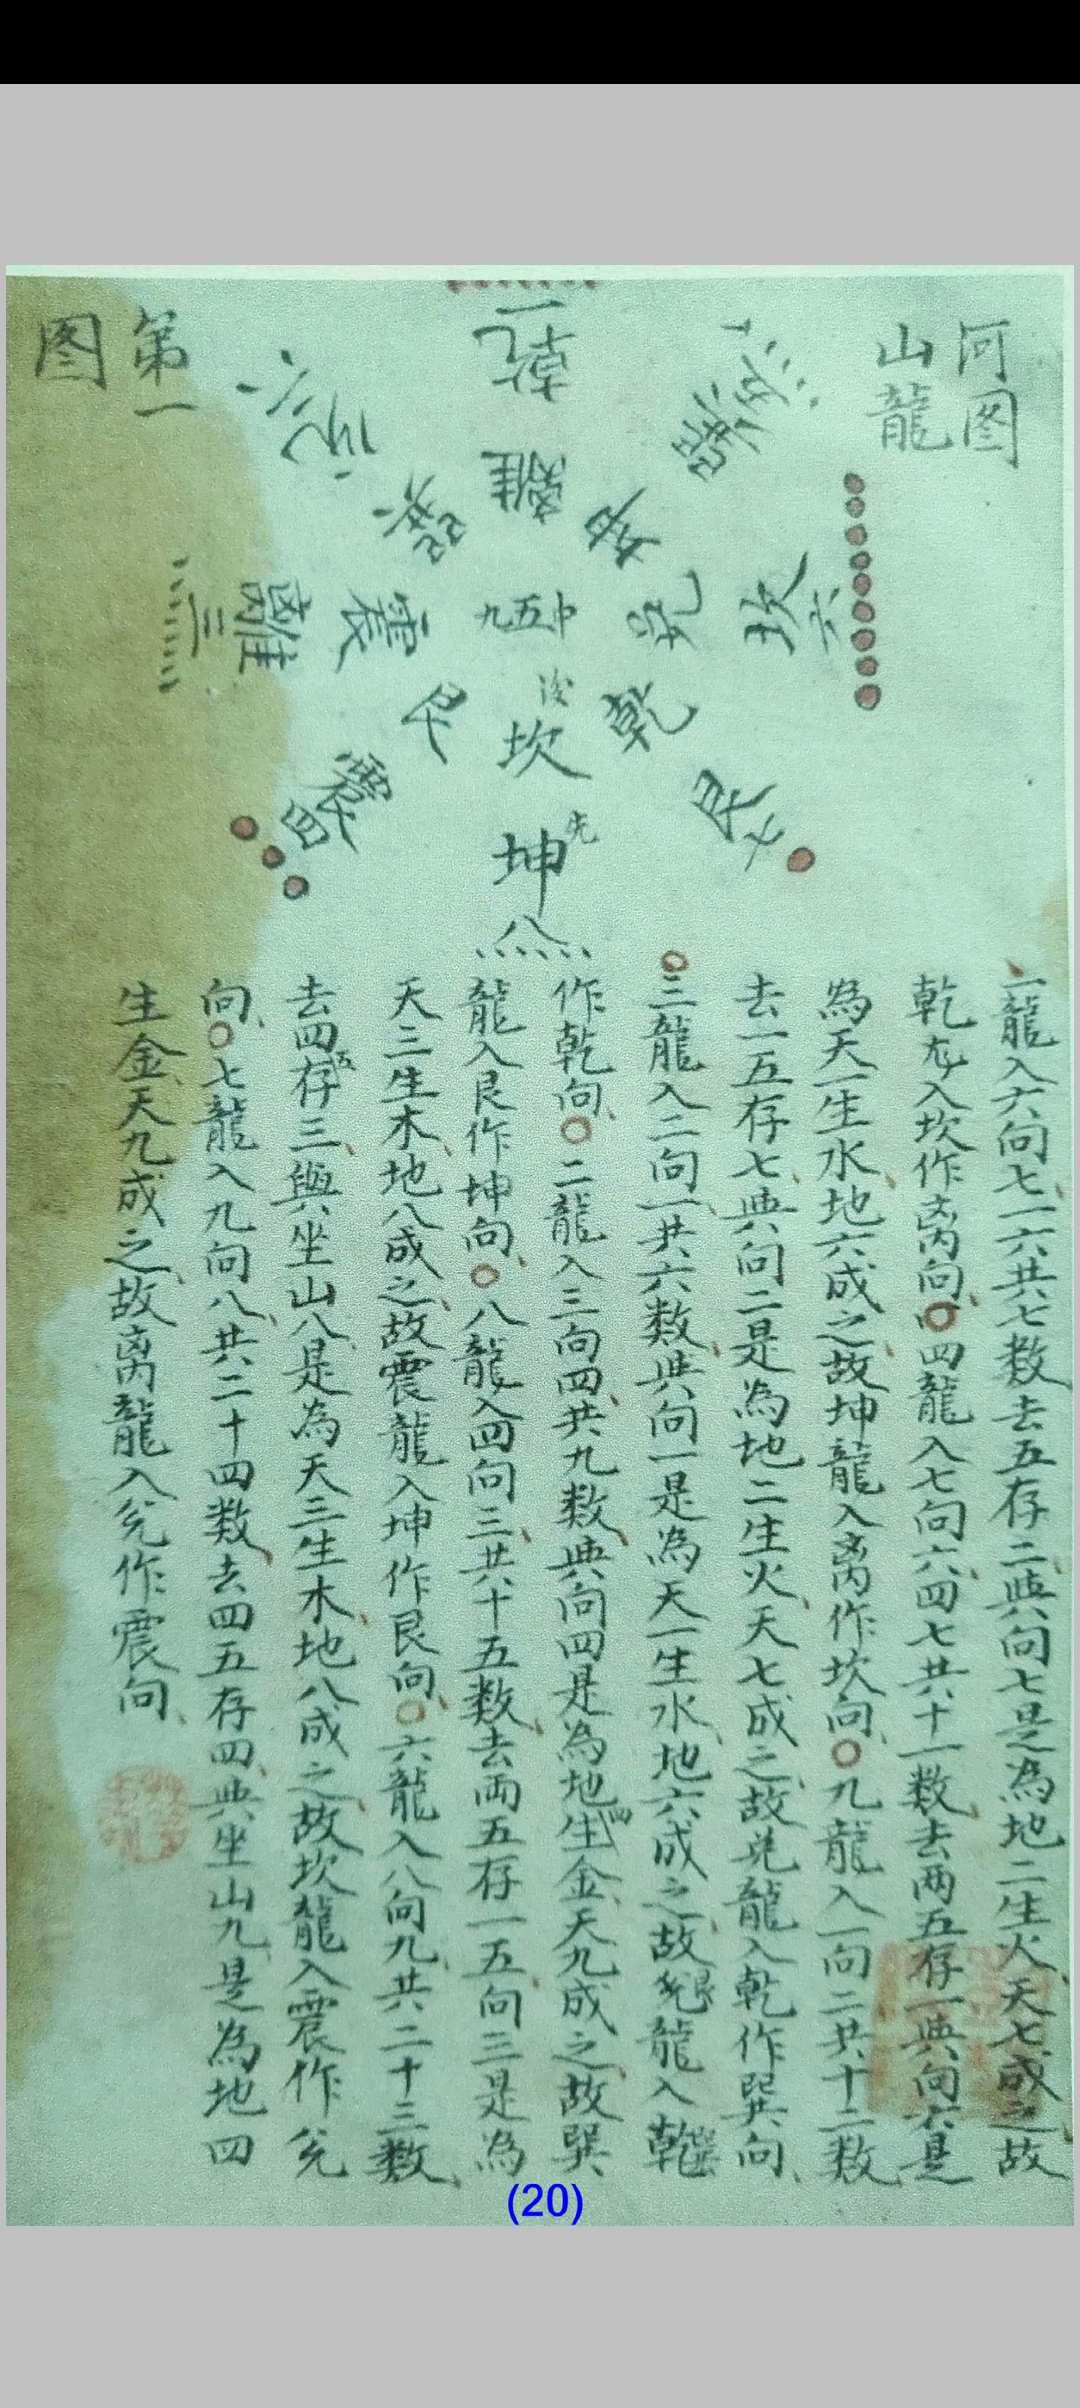 河图
山龍
第一
图
一乾
離
坤
巽
兌
坎六
中五九
震
離三
艮
乾
後
坎
先
坤
八
震四
艮七
一龍入六向七一六共七数去五存二與向七是為地二生火天七成之故
乾龙入坎作离向四龍入七向六四七共十一数去两五存一與向六是
為天一生水地六成之故坤龍入离作坎向九龍入一向二共十二数
去一五存七與向二是為地二生火天七成之故兑龍入乾作巽向
三龍入二向一共六数與向一是為天一生水地六成之故艮龍入巽
作乾向二龍入三向四共九数與向四是為地四生金天九成之故巽
龍入艮作坤向八龍入四向三共十五数去両五存一五向三是為
天三生木地八成之故震龍入坤作艮向六龍入八向九共二十三数
去四五存三與坐山八是為天三生木地八成之故坎龍入震作兊
向七龍入九向八共二十四数去四五存四與坐山九是為地四
生金天九成之故离龍入兊作震向
(20)